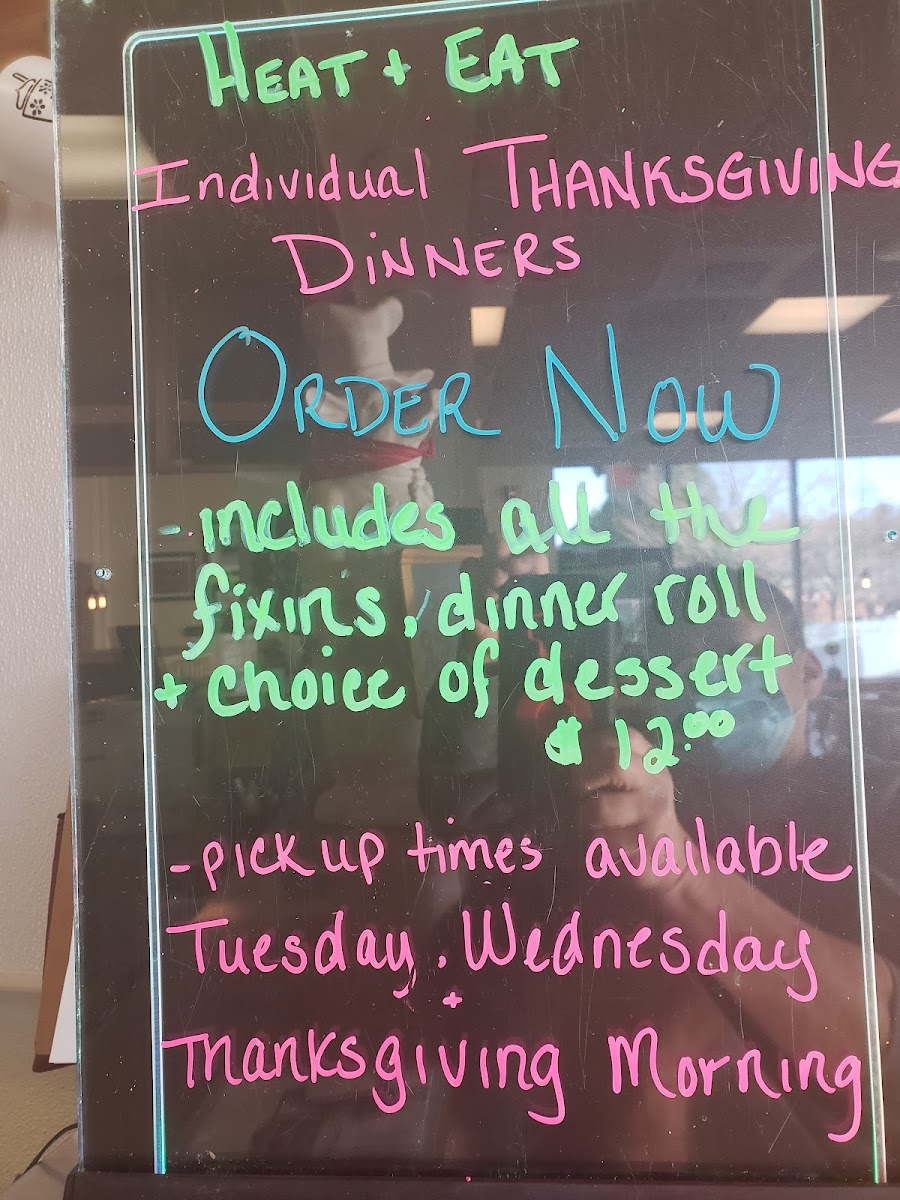 HEAT + EAT
Individual THANKSGIVING
DINNERS
ORDER NOW
- includes all the
fixin's, dinner roll
+ choice of dessert
$12.00
- pick up times available
Tuesday, Wednesday
+
Thanksgiving Morning